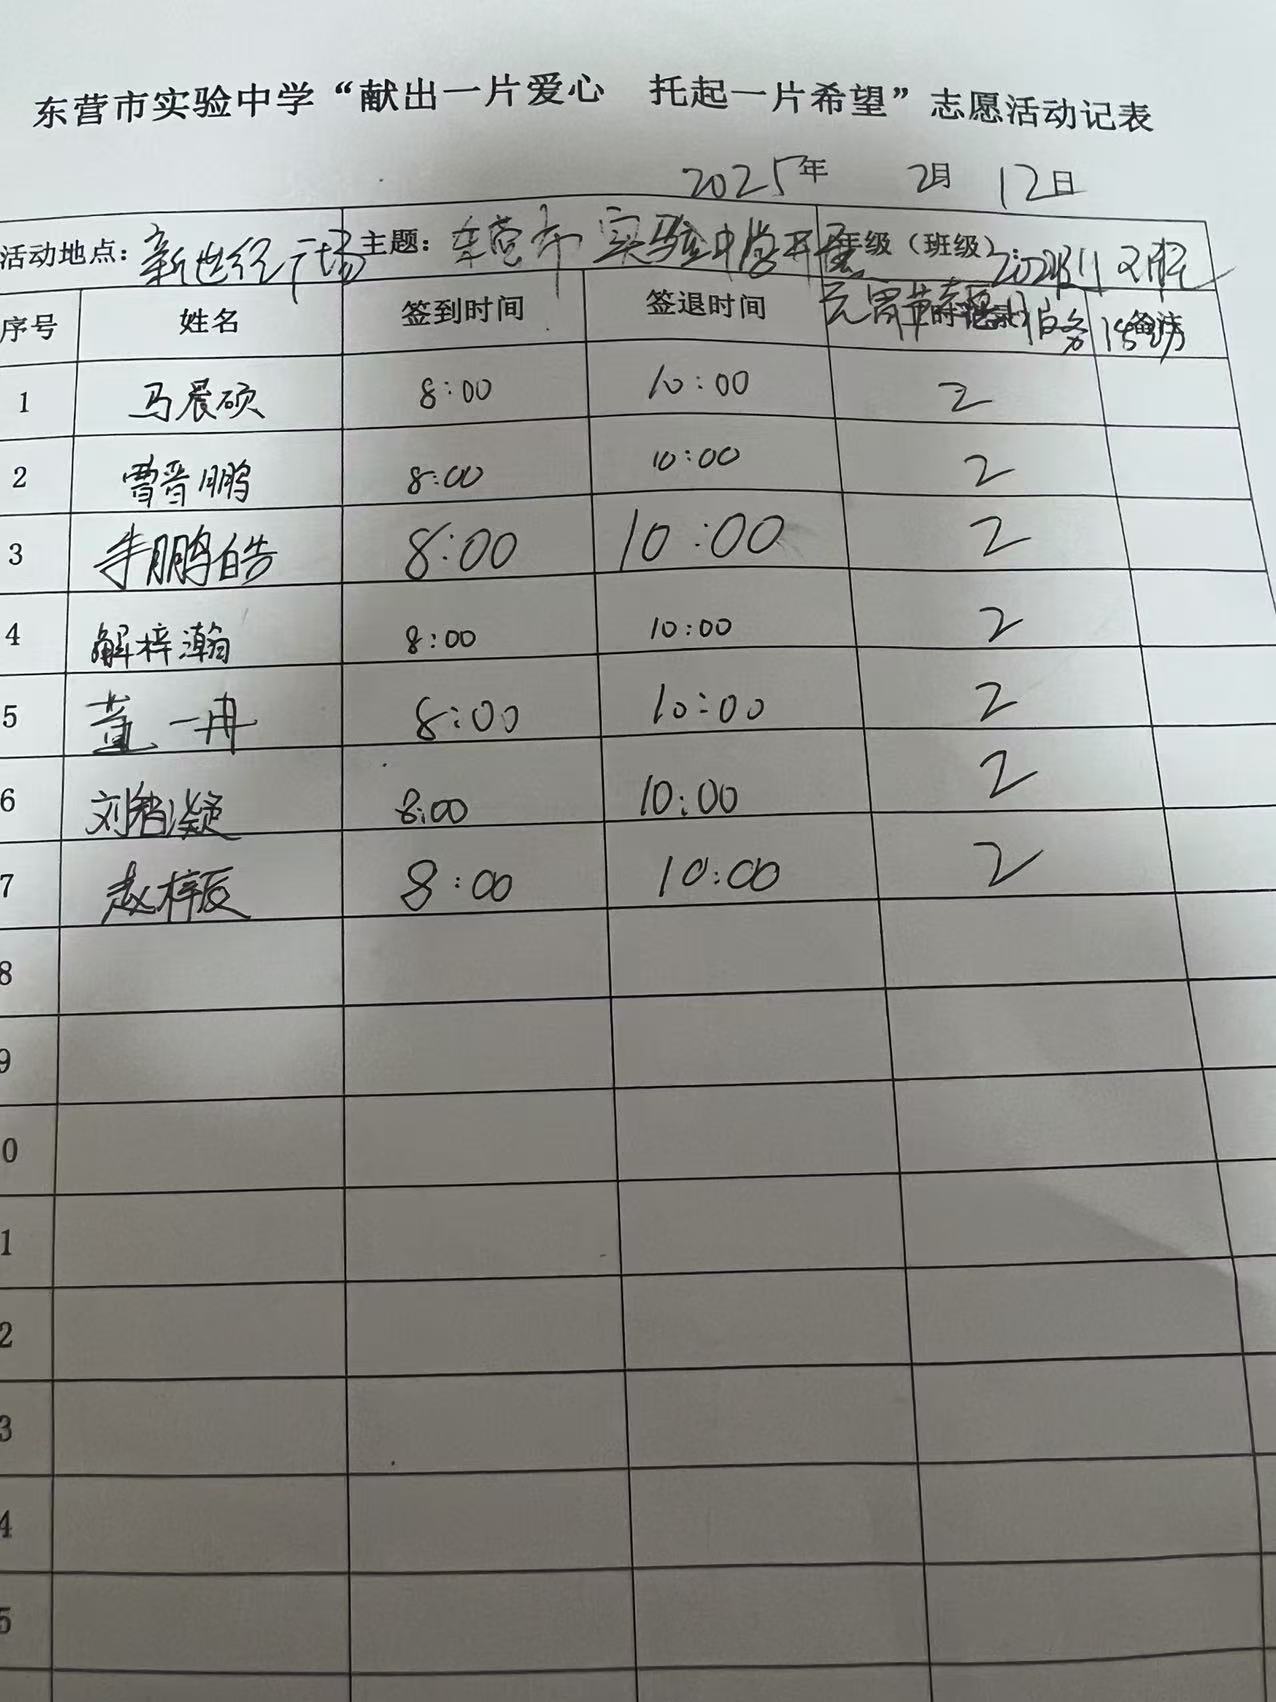 东营市实验中学“献出一片爱心 托起一片希望”志愿活动记表
2025年 2月 12日
活动地点：新世纪广场 主题：东营市实验中学开展 年级（班级）
元宵节 任务
序号 姓名 签到时间 签退时间 备注
1 马晨硕 8:00 10:00 2
2 曹晋鹏 8:00 10:00 2
3 李鹏皓 8:00 10:00 2
4 解梓瀚 8:00 10:00 2
5 董一冉 8:00 10:00 2
6 刘智凝 8:00 10:00 2
7 赵梓辰 8:00 10:00 2
8
9
0
1
2
3
4
5